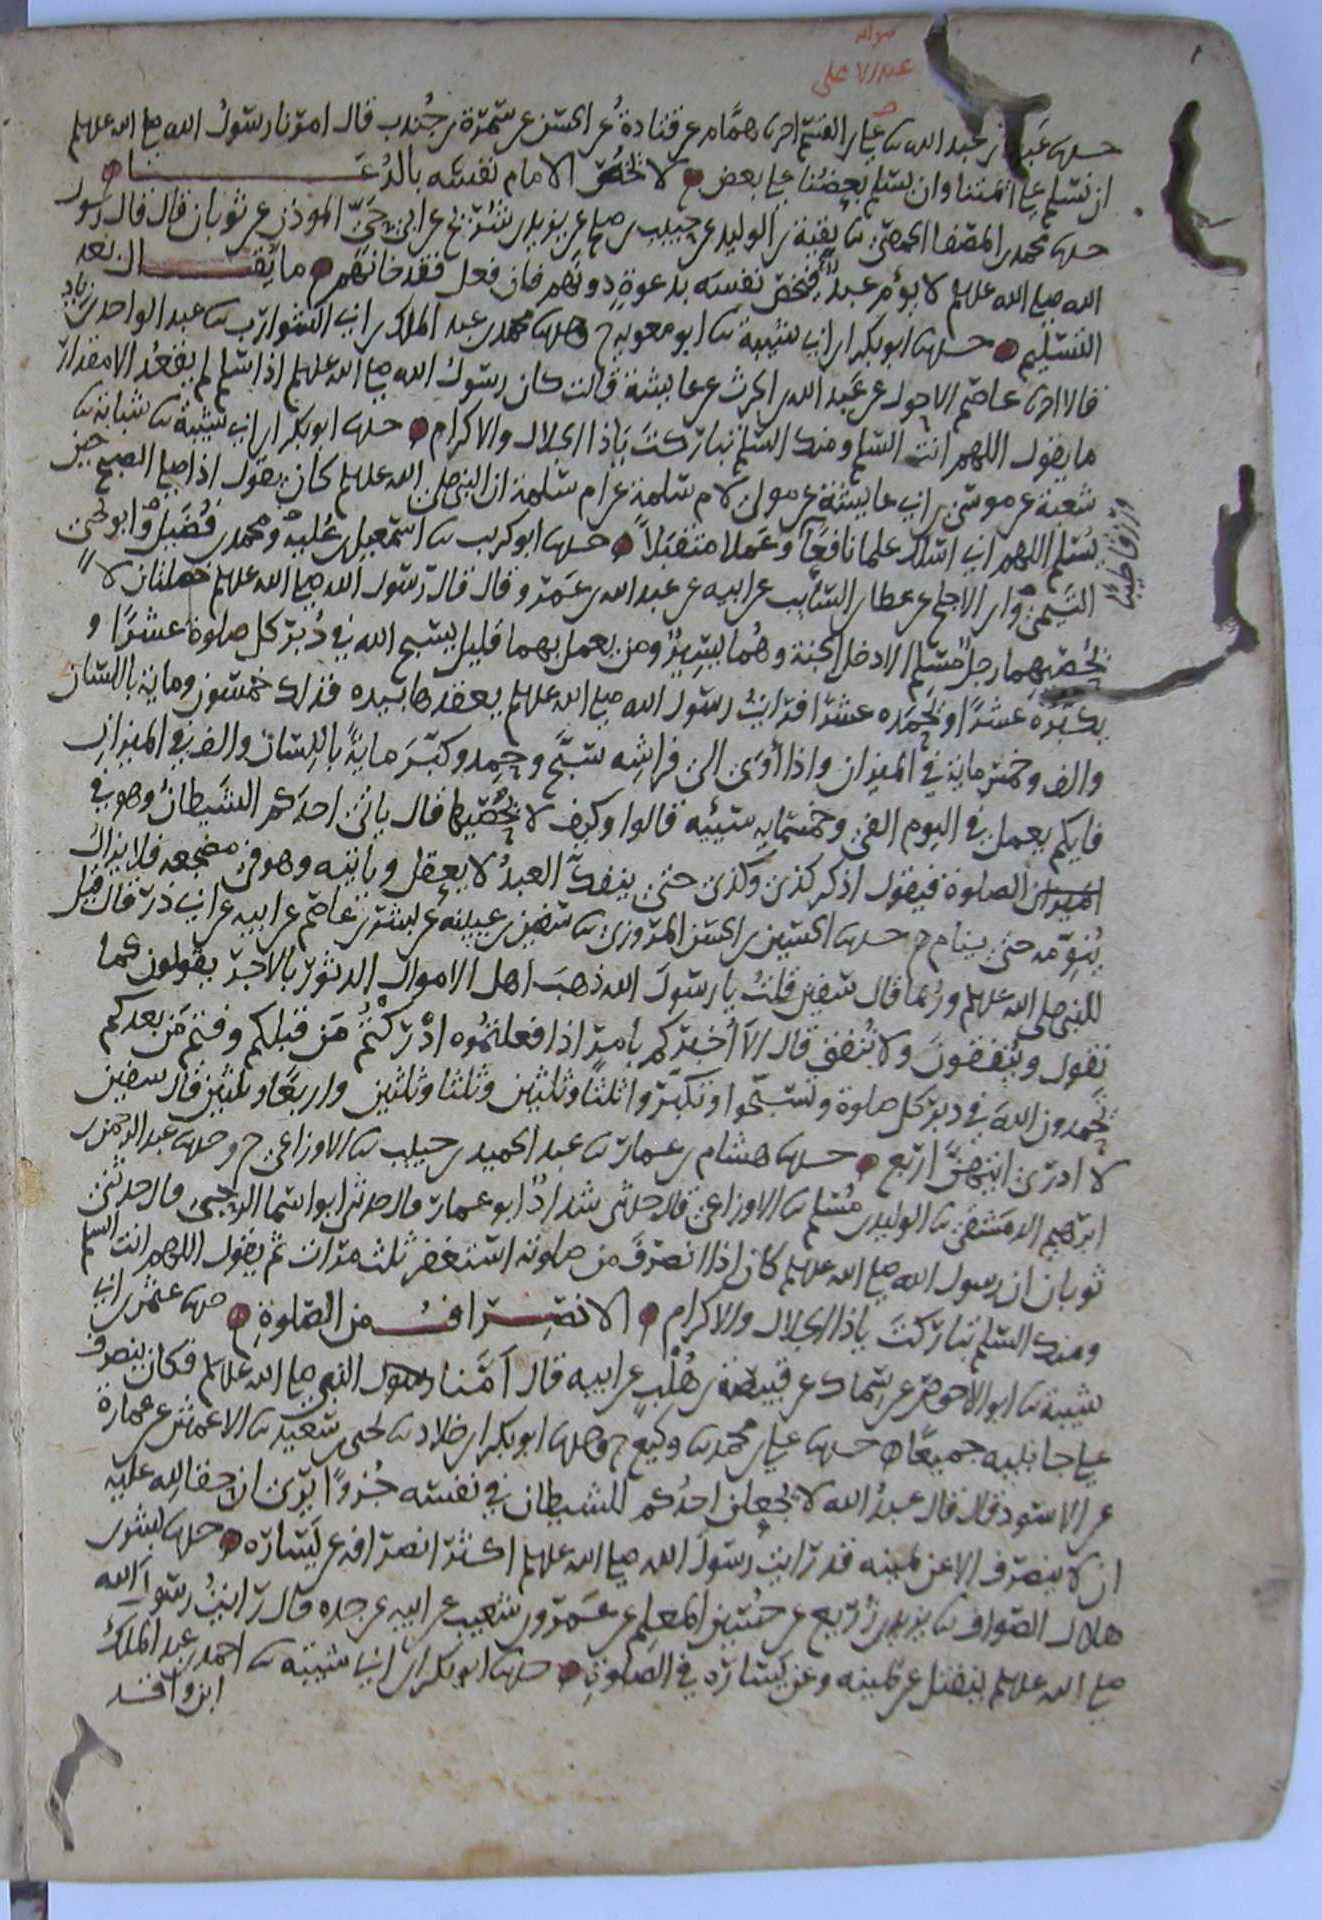 صوابه
عبد الاعلى
حدثنا عبدة بن عبد الله ثنا علي بن القسم اخبرنا همام عن قتادة عن الحسن عن سمرة بن جندب قال امرنا رسول الله صلى الله عليه وسلم
ان نسلم على ائمتنا وان يسلم بعضنا على بعض لا يخص الامام نفسه بالدعا
حدثنا محمد بن المصفا الحمصي ثنا بقية بن الوليد عن حبيب بن صالح عن يزيد بن شريح عن ابي حي الموذن عن ثوبان قال قال رسول
الله صلى الله عليه وسلم لا يؤم عبد فيخص نفسه بدعوة دونهم فان فعل فقد خانهم ما يقال بعد
التسليم حدثنا ابو بكر بن ابي شيبة ثنا ابو معوية ح وحدثنا محمد بن عبد الملك بن ابي الشوارب ثنا عبد الواحد بن زياد
قالا اخبرنا عاصم الاحول عن عبد الله بن الحرث عن عايشة قالت كان رسول الله صلى الله عليه وسلم اذا سلم لم يقعد الا مقدار
ما يقول اللهم انت السلم ومنك السلم تباركت ياذا الجلال والاكرام حدثنا ابو بكر بن ابي شيبة ثنا شبابة ثنا
شعبة عن موسى بن ابي عايشة عن مولى لام سلمة عن ام سلمة ان النبي صلى الله عليه وسلم كان يقول اذا صلى الصبح حين
يسلم اللهم اني اسلك علما نافعا وعملا متقبلا حدثنا ابو كريب ثنا اسمعيل بن علية ومحمد بن فضيل وابو يحيى
ورزقا طيبا
التيمي وابن الاجلح عن عطا بن السايب عن ابيه عن عبد الله بن عمرو قال قال رسول الله صلى الله عليه وسلم خصلتان لا
يحصيهما رجل مسلم الا دخل الجنة وهما يسير ومن يعمل بهما قليل يسبح الله في دبر كل صلوة عشرا و
يكبره عشرا ويحمده عشرا فرايت رسول الله صلى الله عليه وسلم يعقدها بيده فذلك خمسون وماية باللسان
والف وخمس ماية في الميزان واذا اوى الى فراشه سبح وحمد وكبر ماية باللسان والف في الميزان
فايكم يعمل في اليوم الفي وخمسماية سيئة قالوا وكيف لا يحصيها قال ياتي احدكم الشيطان وهو في
الصلوة فيقول اذكر كذى وكذى حتى ينفك العبد لا يعقل وياتيه وهو في مضجعه فلا يزال
ينومه حتى ينام حدثنا الحسين بن الحسن المروزي ثنا سفين بن عيينة عن بشر بن عاصم عن ابيه عن ابي ذر قال قيل
للنبي صلى الله عليه وسلم وربما قال سفين قلت يا رسول الله ذهب اهل الاموال الدثور بالاجر يقولون كما
نقول وينفقون ولا ننفق قال الا اخبركم بامر اذا فعلتموه ادركتم من قبلكم وفتم من بعدكم
تحمدون الله في دبر كل صلوة وتسبحوا وتكبروا ثلثا وثلثين وثلثا وثلثين واربعا وثلثين قال سفين
لا ادري ايتهن اربع حدثنا هشام بن عمار ثنا عبد الحميد بن حبيب ثنا الاوزاعي ح وحدثنا عبد الرحمن بن
ابرهيم الدمشقي ثنا الوليد بن مسلم ثنا الاوزاعي قال حدثني شداد ابو عمار قال حدثني ابو اسما الرحبي قال حدثني
ثوبان ان رسول الله صلى الله عليه وسلم كان اذا انصرف من صلوته استغفر ثلث مرات ثم يقول اللهم انت السلم
ومنك السلم تباركت ياذا الجلال والاكرام الانصراف من الصلوة حدثنا عثمن بن ابي
شيبة ثنا ابو الاحوص عن سماك عن قبيصة بن هلب عن ابيه قال امنا النبي صلى الله عليه وسلم فكان ينصرف
على جانبيه جميعا حدثنا علي بن محمد ثنا وكيع ح وحدثنا ابو بكر بن خلاد ثنا يحيى بن سعيد ثنا الاعمش عن عمارة
عن الاسود قال قال عبد الله لا يجعلن احدكم للشيطان في نفسه جزوا يرى ان حقا لله عليه
ان لا ينصرف الا عن يمينه قد رايت رسول الله صلى الله عليه وسلم اكثر انصرافه عن يساره حدثنا بشر بن
هلال الصواف ثنا يزيد بن زريع عن حسين المعلم عن عمرو بن شعيب عن ابيه عن جده قال رايت رسول الله
صلى الله عليه وسلم ينفتل عن يمينه وعن يساره في الصلوة حدثنا ابو بكر بن ابي شيبة ثنا احمد بن عبد الملك
ابن واقد